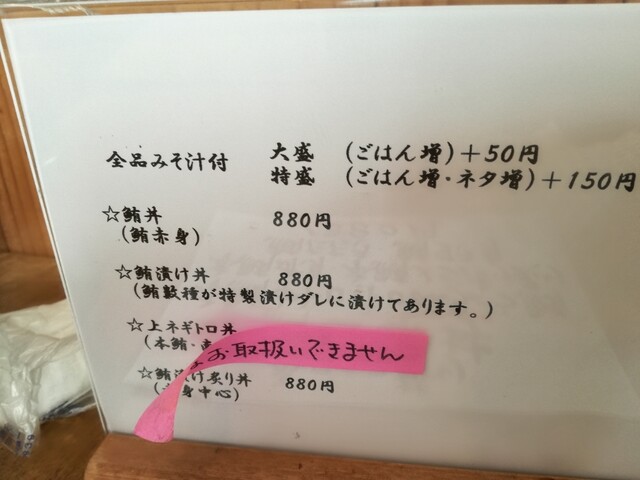 全品みそ汁付
大盛 (ごはん増)+50円
特盛 (ごはん増・ネタ増)+150円
☆鮪丼 880円
(鮪赤身)
☆鮪漬け丼 880円
(鮪数種が特製漬けダレに漬けてあります。)
☆上ネギトロ丼
(本鮪・
お取扱いできません
☆鮪漬け炙り丼 880円
身中心)